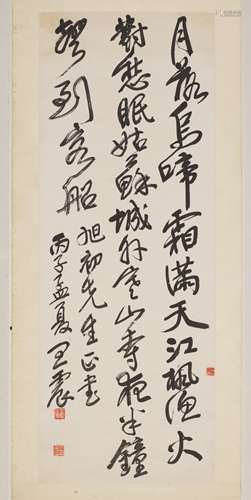 月落烏啼霜滿天江楓漁火
對愁眠姑蘇城外寒山寺夜半鐘
聲到客船
旭初先生正
丙子孟夏王震